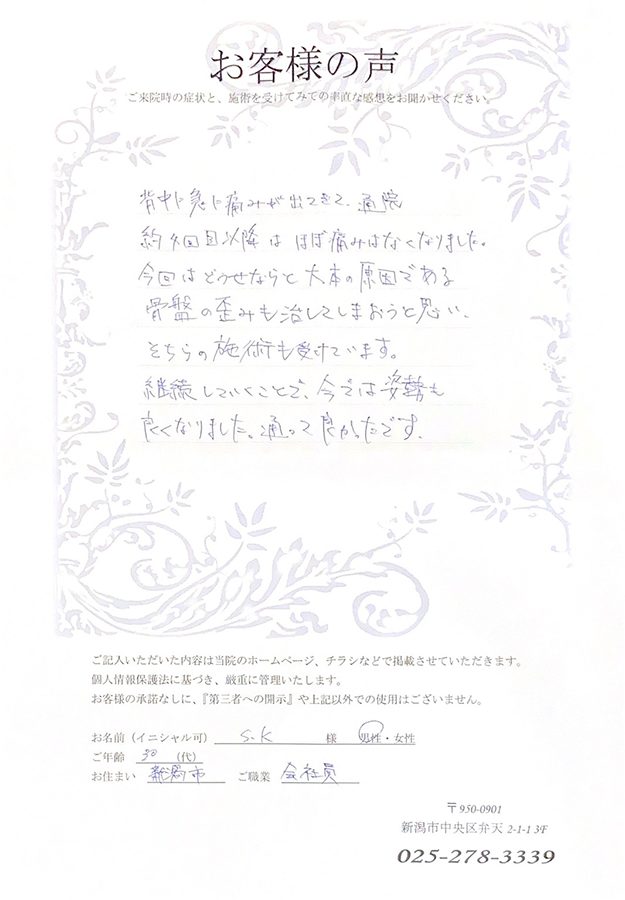 お客様の声
ご来院時の症状と、施術を受けてみての率直な感想をお聞かせください。
背中に急に痛みが出てきて、通院
約4回目以降は ほぼ痛みはなくなりました。
今回はどうせならと大本の原因である
骨盤の歪みも治してしまおうと思い、
そちらの施術も受けています。
継続していくことで、今では姿勢も
良くなりました。通って良かったです。
ご記入いただいた内容は当院のホームページ、チラシなどで掲載させていただきます。
個人情報保護法に基づき、厳重に管理いたします。
お客様の承諾なしに、『第三者への開示』や上記以外での使用はございません。
お名前（イニシャル可） S.K 様 男性・女性
ご年齢 30 （代）
お住まい 新潟市 ご職業 会社員
〒950-0901
新潟市中央区弁天 2-1-1 3F
025-278-3339